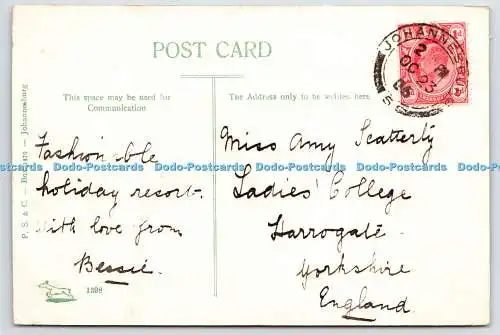 POST CARD
This space may be used for
Communication
The Address only to be written here
JOHANNESBURG
2 PM
OC 23
05
5
P. S. & C. – Durban – Johannesburg
Fashionable
holiday resort.
With love from
Bessie.
1398
Miss Amy Scatterty
Ladies' College
Harrogate
Yorkshire
England.
Dodo-Postcards Dodo-Postcards Dodo-Postcards Dodo-Postcards Dodo-Postcards Dodo-Postcards